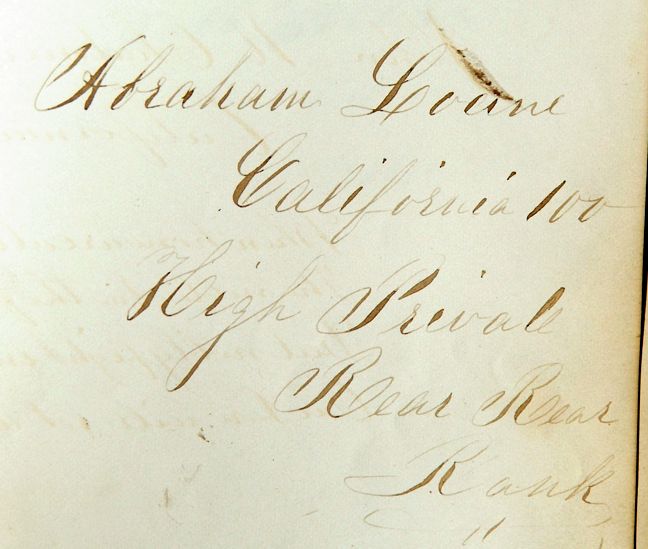 Abraham Loane
California 100
High Privale
Rear Rear
Rank
"